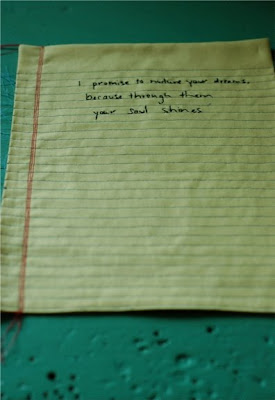 I promise to nurture your dreams,
because through them
your soul shines